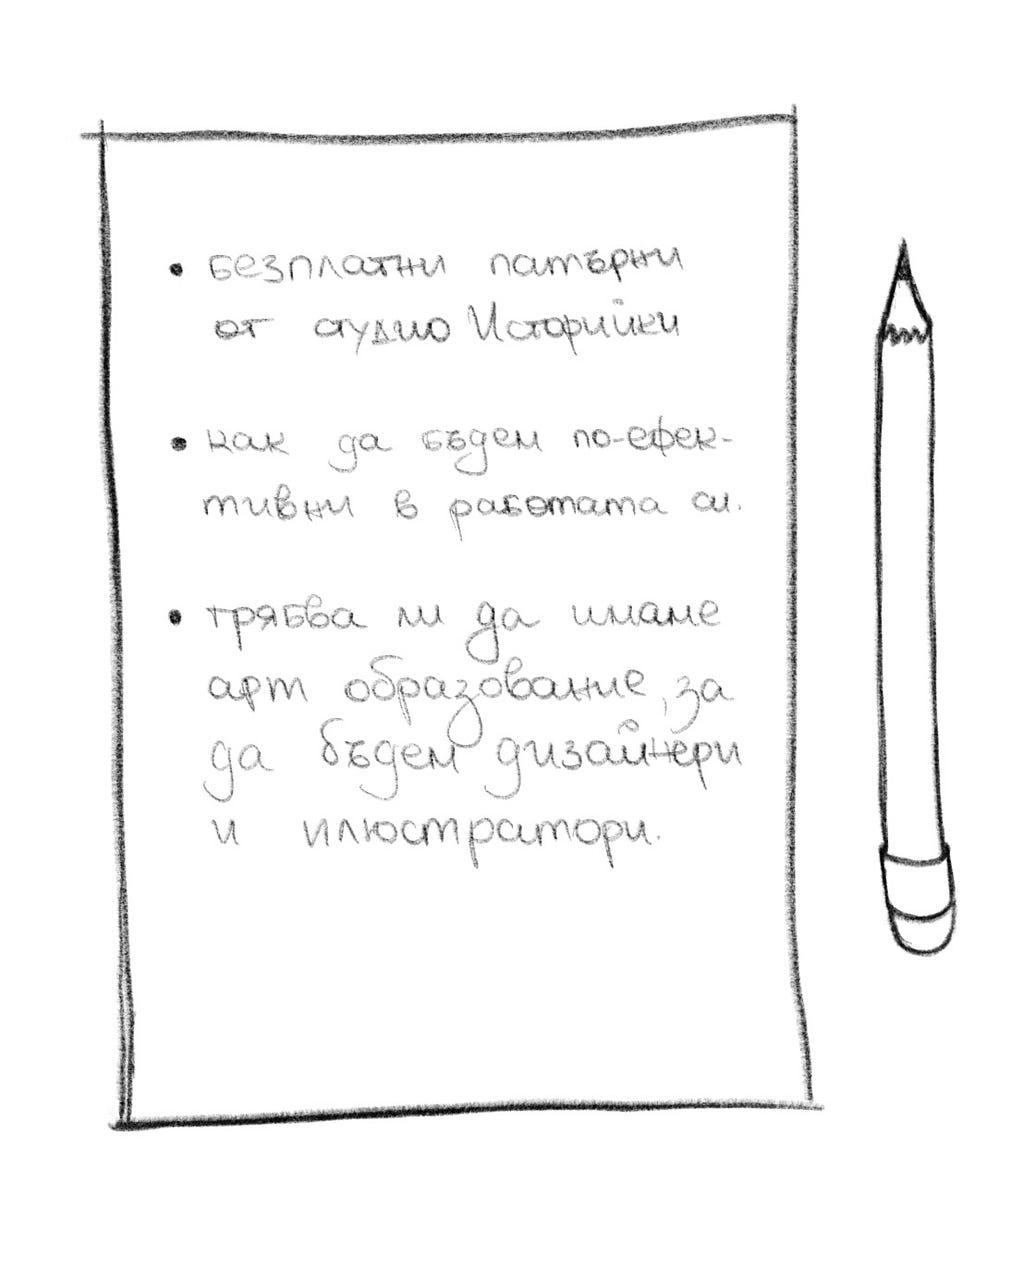 • безплатни патърни
от студио Историйки
• как да бъдем по-ефек-
тивни в работата си.
• трябва ли да имаме
арт образование, за
да бъдем дизайнери
и илюстратори.